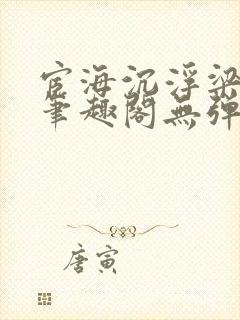 宦海沉浮梁
笔趣阁無弹
唐寅